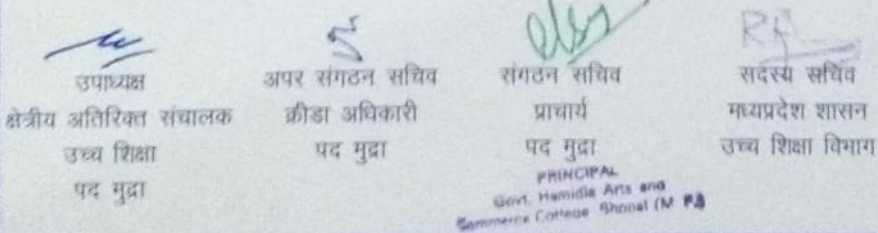 उपाध्यक्ष
क्षेत्रीय अतिरिक्त संचालक
उच्च शिक्षा
पद मुद्रा
अपर संगठन सचिव
क्रीडा अधिकारी
पद मुद्रा
संगठन सचिव
प्राचार्य
पद मुद्रा
PRINCIPAL
Govt. Hamidia Arts and
Commerce College Bhopal (M P.)
सदस्य सचिव
मध्यप्रदेश शासन
उच्च शिक्षा विभाग